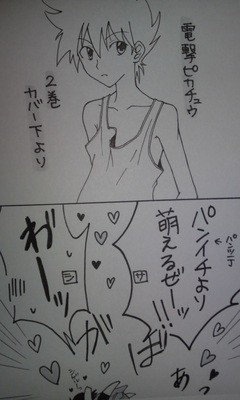 電撃ピカチュウ
2巻
カバー下より
パンイチより
↑
パンツ一丁
萌えるぜーッ
!!!
サ
シ
がば
わーッ
あっ